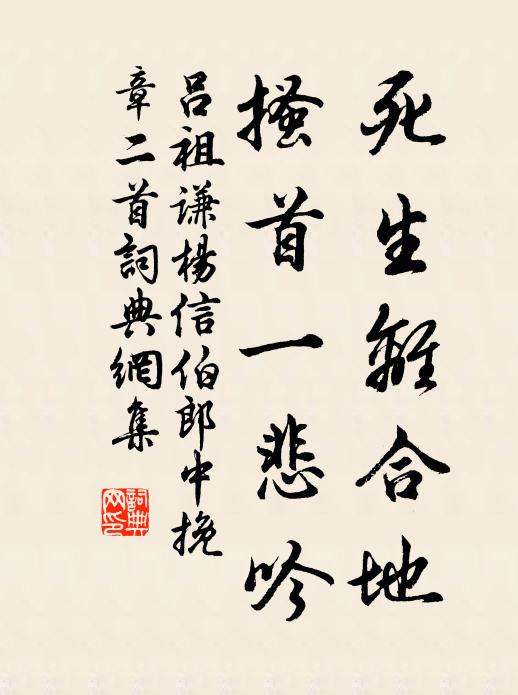 死生離合地
搔首一悲吟
呂祖謙楊信伯郎中挽
章二首詞典網集
詞典
网印